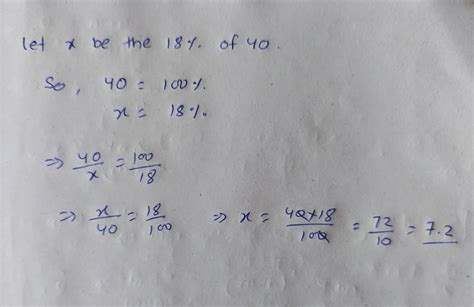 let x be the 18% of 40.
So, 40 = 100%.
x = 18%.
⇒ 40/x = 100/18
⇒ x/40 = 18/100 ⇒ x = 40×18/100 = 72/10 = 7.2